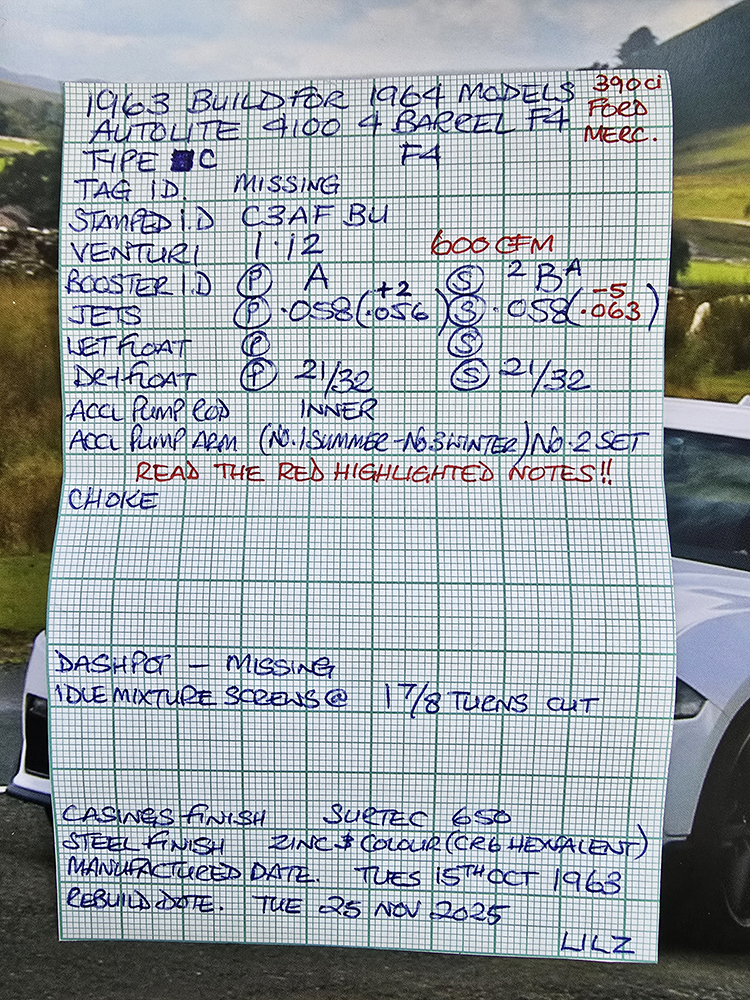 1963 BUILD FOR 1964 MODELS 390ci
AUTOLITE 4100 4 BARREL F4 FORD
MERC.
TYPE C F4
TAG ID. MISSING
STAMPED I.D C3AF BU
VENTURI 1.12 600 CFM
BOOSTER I.D (P) A (S) 2BA
JETS (P) .058(.056 +2) (S) .058(.063 -5)
WET FLOAT (P) (S)
DRY FLOAT (P) 21/32 (S) 21/32
ACCL PUMP ROD INNER
ACCL PUMP ARM (NO.1.SUMMER-NO.3WINTER) NO.2 SET
READ THE RED HIGHLIGHTED NOTES!!
CHOKE
DASHPOT - MISSING
IDLE MIXTURE SCREWS @ 1 7/8 TURNS OUT
CASINGS FINISH SURTEC 650
STEEL FINISH ZINC & COLOUR (CR6 HEXVALENT)
MANUFACTURED DATE. TUES 15TH OCT 1963
REBUILD DATE. TUE 25 NOV 2025
LILZ